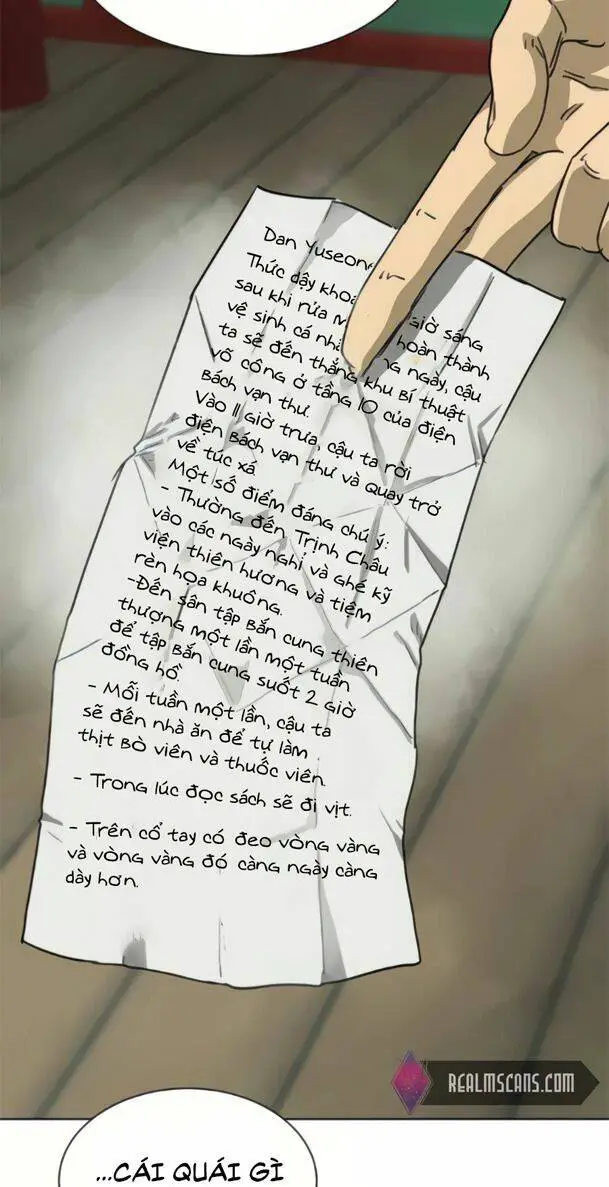 Dan Yuseong
Thức dậy Giờ sáng
sau khi rửa hoàn thành
vệ sinh cá ngày, cậu
ta sẽ đến thẳng khu bí thuật
võ công ở tầng 10 của điện
Bách vạn thư.
Vào 11 giờ trưa, cậu ta rời
điện Bách vạn thư và quay trở
về túc xá
Một số điểm đáng chú ý:
- Thường đến Trịnh Châu
vào các ngày nghỉ và ghé kỹ
viện thiên hương và tiệm
rèn họa khuông.
-Đến sân tập bắn cung thiên
thượng một lần một tuần
để tập bắn cung suốt 2 giờ
đồng hồ.
- Mỗi tuần một lần, cậu ta
sẽ đến nhà ăn để tự làm
thịt bò viên và thuốc viên.
- Trong lúc đọc sách sẽ đi vịt.
- Trên cổ tay có đeo vòng vàng
và vòng vàng đó càng ngày càng
dày hơn.
REALMSCANS.COM
...CÁI QUÁI GÌ